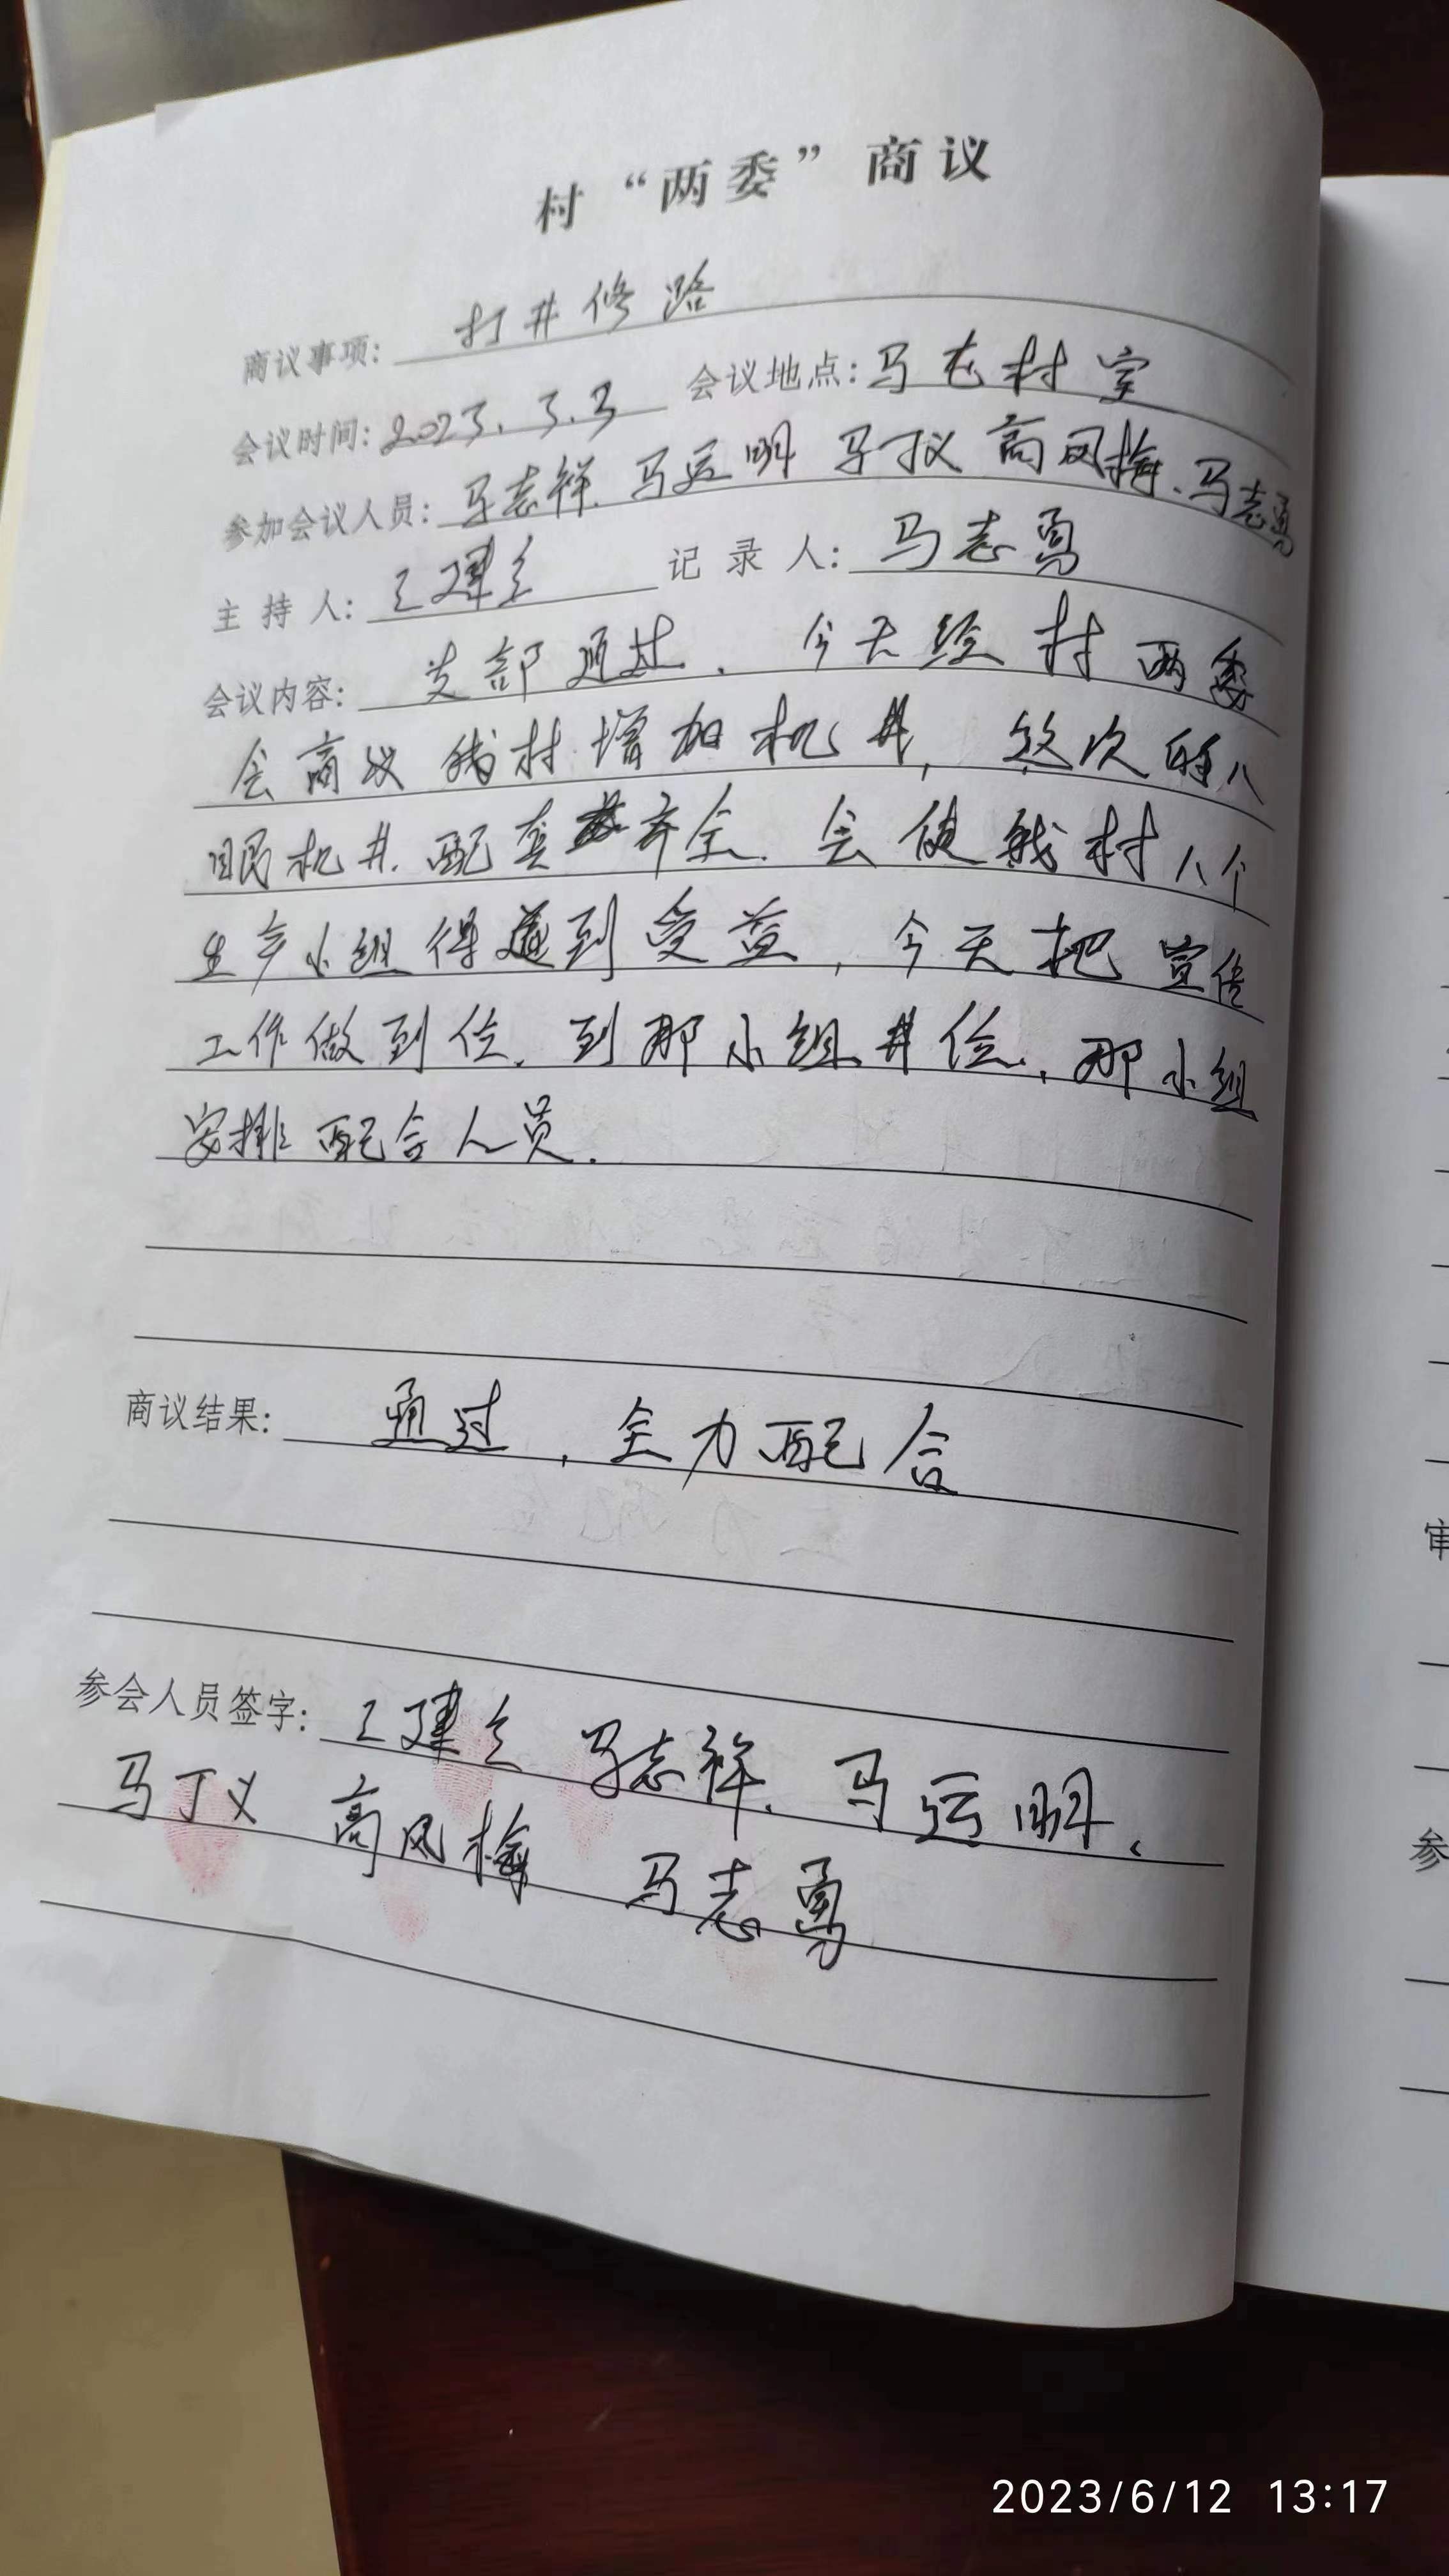 村“两委”商议
商议事项：打井修路
会议时间：2023.3.3 会议地点：马屯村室
参加会议人员：马志祥.马运明 马丁义 高风梅.马志勇
主持人：王建立 记录人：马志勇
会议内容：支部通过.今天经村两委
会商议我村增加机井，这次的八
眼机井.配套齐全.会使我村八个
生产小组得到受益，今天把宣传
工作做到位.到那小组井位.，那小组
安排配合人员.
商议结果：通过，全力配合
参会人员签字：王建立 马志祥.马运明、
马丁义 高风梅 马志勇
审
参
2023/6/12 13:17